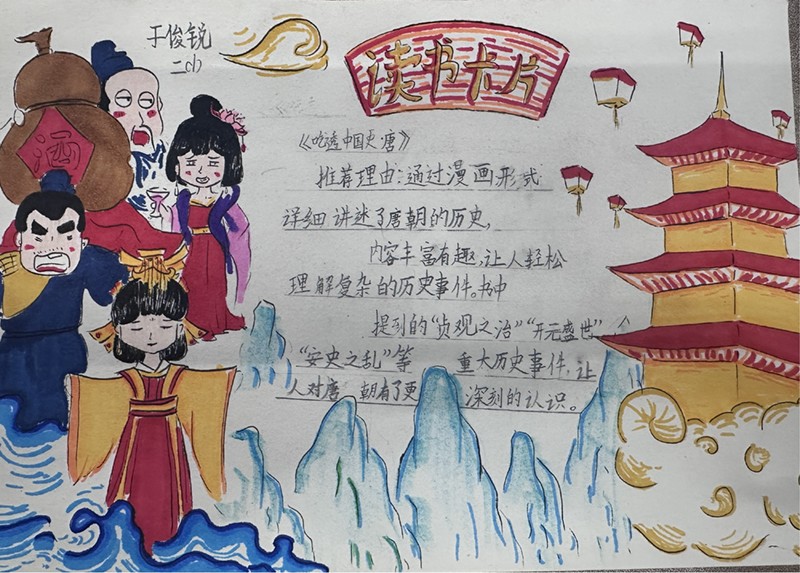 于俊锐
二(1)
读书卡片
酒
《吃透中国史唐》
推荐理由:通过漫画形式
详细讲述了唐朝的历史,
内容丰富有趣,让人轻松
理解复杂的历史事件。书中
提到的“贞观之治”“开元盛世”、
“安史之乱”等 重大历史事件,让
人对唐 朝有了更 深刻的认识。